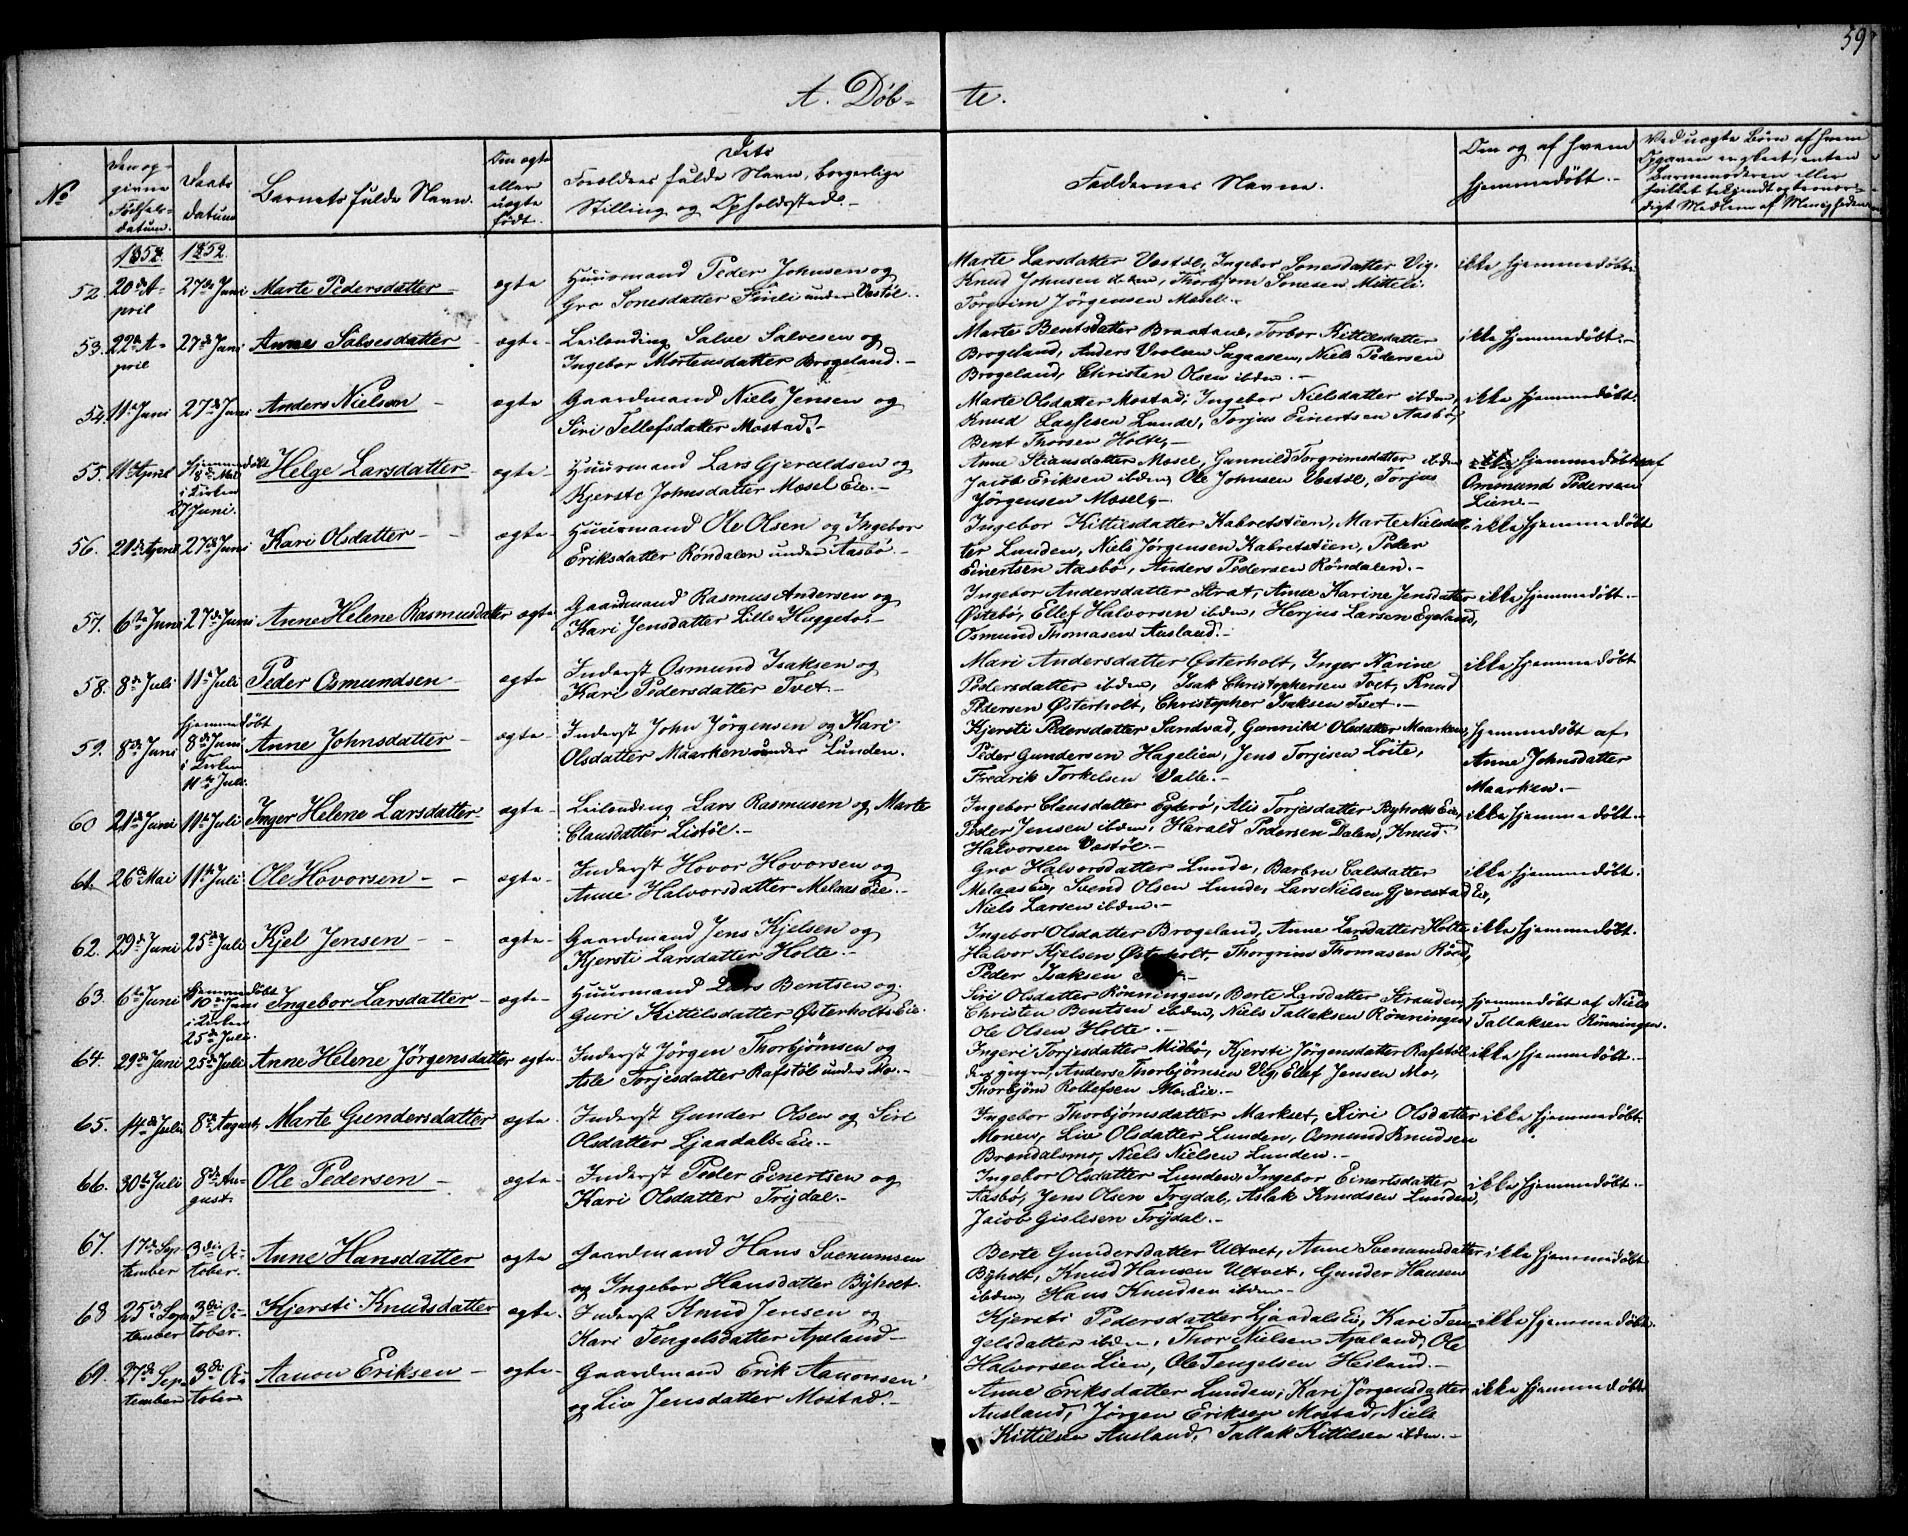 59
A. Døb- te.
No
Den op-
givne
Fødsels-
datum.
Daabs
datum
Barnets fulde Navn.
Om ægte
eller
uægte
født.
Dets
Forældres fulde Navn, borgerlige
Stilling og Opholdssted.-
Faddernes Navne.
Om og af hvem
hjemmedøbt.-
Ved uægte Børn af hvem
Opgaven er skeet, enten
Barnemoderen eller
hvilket bekjendt og troværdigt Medlem af Menigheden
1852. 1852.
52. 20de A-
pril 27de Juni Marte Pedersdatter ægte Huusmand Peder Johnsen og
Gro Sonesdatter Fineli under Vestøl.
Marte Larsdatter Vestøl, Ingebor Sonesdatter Vig.
Knud Johnsen ibden, Thorbjørn Sonesen Mitteli
Torgrim Jørgensen Mosel.-
ikke hjemmedøbt.
53. 22de A-
pril 27de Juni Anne Salvesdatter ægte Leilending Salve Salvesen og
Ingebor Mortensdatter Brogeland.-
Marte Bentsdatter Braatane, Torbor Kittilsdatter
Brogeland, Anders Voolsen Sagaasen, Niels Pedersen
Brogeland, Christen Olsen ibden.-
ikke hjemmedøbt.-
54. 11te Juni 27de Juni Anders Nielsen ægte Gaardmand Niels Jensen og
Siri Tellefsdatter Mostad.-
Marte Olsdatter Mostad, Ingebor Nielsdatter ibden,
Knud Laufesen Lunde, Torjus Einertsen Aasbø,
Bent Thorsen Holte.-
ikke hjemmedøbt.
55. 11te April hjemmedøbt
18de Mai
i Kirken
27 Juni. Helge Larsdatter ægte Huusmand Lars Gjeruldsen og
Kjersti Johnsdatter Mosel Eie.-
Anne Stiansdatter Mosel, Gunnild Torgrimsdatter ibden
Jacob Eriksen ibden, Ole Johnsen Vestøl, Torjus
Jørgensen Mosel.-
hjemmedøbt af
Osmund Pedersen
Liene.-
56. 21de April 27de Juni Kari Olsdatter ægte Huusmand Ole Olsen og Ingebor
Eriksdatter Røndalen under Aasbø.-
Ingebor Kittilsdatter Kabretstøen, Marte Nielsdat-
ter Lunden, Niels Jørgensen Kabretstøen, Peder
Einertsen Aasbø, Anders Pedersen Røndalen.-
ikke hjemmedøbt
57. 6te Juni 27de Juni Anne Helene Rasmusdatter ægte Gaardmand Rasmus Andersen og
Kari Jensdatter Lille Huggeto.-
Ingebor Andersdatter Strat, Anne Karine Jensdatter
Østebø, Ellef Halvorsen ibden, Herjus Larsen Egeland,
Osmund Thomasen Ausland.-
ikke hjemmedøbt.-
58. 8de Juli 11te Juli Peder Osmundsen ægte Inderst Osmund Isaksen og
Kari Pedersdatter Tvet.-
Mari Andersdatter Østerholt, Inger Karine
Pedersdatter ibden, Isak Christophersen Tvet, Knud
Pedersen Østerholt, Christopher Isaksen Tvet.-
ikke hjemmedøbt
59. 8de Juni hjemmedøbt
8de Juni
i Kirken
11te Juli. Anne Johnsdatter ægte Inderst John Jørgensen og Kari
Olsdatter Maarken under Lunden.
Kjersti Pedersdatter Sandvad, Gunnild Olsdatter Maarken,
Peder Gundersen Hagelien, Jens Torjesen Løite,
Fredrik Torkelsen Valle.-
hjemmedøbt af
Anne Johnsdatter
Maarken.-
60 21de Juni 11te Juli Inger Helene Larsdatter ægte Leilending Lars Rasmusen og Marte
Clausdatter Listøl.-
Ingebor Clausdatter Egderø, Alis Torjesdatter Byholt Eie,
Peder Jensen ibden, Harald Pedersen Dalen, Knud
Halvorsen Vestøl.-
ikke hjemmedøbt.-
61. 26de Mai 11te Juli Ole Hovorsen ægte Inderst Hovor Hovorsen og
Anne Halvorsdatter Melaas Eie.-
Gro Halvorsdatter Lunde, Barbro Calsdatter
Melaas Eie, Svend Olsen Lunde, Lars Nielsen Gjerestad Eie,
Niels Larsen ibden.-
ikke hjemmedøbt.
62. 29de Juni 25de Juli Kjel Jensen ægte Gaardmand Jens Kjelsen og
Kjersti Larsdatter Holte.-
Ingebor Olsdatter Brogeland, Anne Larsdatter Holte,
Halvor Kjelsen Østerholt, Thorgrim Thomasen Røed,
Peder Isaksen
ikke hjemmedøbt.
63. 6te Juni hjemmedøbt
10de Juni
i Kirken
25de Juli. Ingebor Larsdatter ægte Huusmand Lars Bentsen og
Guri Kittilsdatter Østerholts Eie.
Siri Olsdatter Rønningen, Berte Larsdatter Stranden
Christen Bentsen ibden, Niels Tallaksen Rønningen
Ole Olsen Holte.-
hjemmedøbt af Niels
Tallaksen Rønningen.
64. 29de Juni 25de Juli Anne Helene Jørgensdatter ægte Inderst Jørgen Thorbjørnsen og
Asle Torjesdatter Rafstøl under Mo.-
Ingeri Torjesdatter Midbø, Kjersti Jørgensdatter Rafstøl
Anders Thorbjørnsen Vig, Ellef Jensen Mo,
Thorbjørn Rollefsen Mo Eie.-
ikke hjemmedøbt.
65. 14de Juli 8de August Marte Gundersdatter ægte Inderst Gunder Olsen og Siri
Olsdatter Ljaadals Eie.-
Ingebor Thorbjørnsdatter Markset, Kiri Olsdatter
Monen, Liv Olsdatter Lunden, Osmund Knudsen
Brøndalsmo, Niels Nielsen Lunden.-
ikke hjemmedøbt
66. 30te Juli 8de Au-
gust Ole Pedersen ægte Inderst Peder Einertsen og
Kari Olsdatter Trydal.-
Ingebor Olsdatter Lunden, Ingebor Einertsdatter
Aasbø, Jens Olsen Trydal, Aslak Knudsen Lunden,
Jacob Gislesen Trydal.-
ikke hjemmedøbt.-
67. 17de Sep-
tember 3die Oc-
tober. Anne Hansdatter ægte Gaardmand Hans Svenumsen
og Ingebor Hansdatter Byholt.
Berte Gundersdatter Ultvet, Anne Svenumsdatter
Byholt, Knud Hansen Ultvet, Gunder Hansen
ibden, Hans Knudsen ibden.-
ikke hjemmedøbt
68 25de Sep-
tember 3die Oc-
tober. Kjersti Knudsdatter ægte Inderst Knud Jensen og
Kari Tengelsdatter Apeland.-
Kjersti Pedersdatter Ljaadals Eie, Kari Ten-
gelsdatter ibden, Thor Nielsen Apeland, Ole
Halvorsen Lien, Ole Tengelsen Heiland.-
ikke hjemmedøbt.
69. 27de Sep-
tember 3die Oc-
tober Aanon Eriksen ægte Gaardmand Erik Aanonsen
og Liv Jensdatter Mostad.-
Anne Eriksdatter Lunden, Kari Jørgensdatter
Ausland, Jørgen Eriksen Mostad, Niels
Kittilsen Ausland, Tallak Kittilsen ibden.-
ikke hjemmedøbt